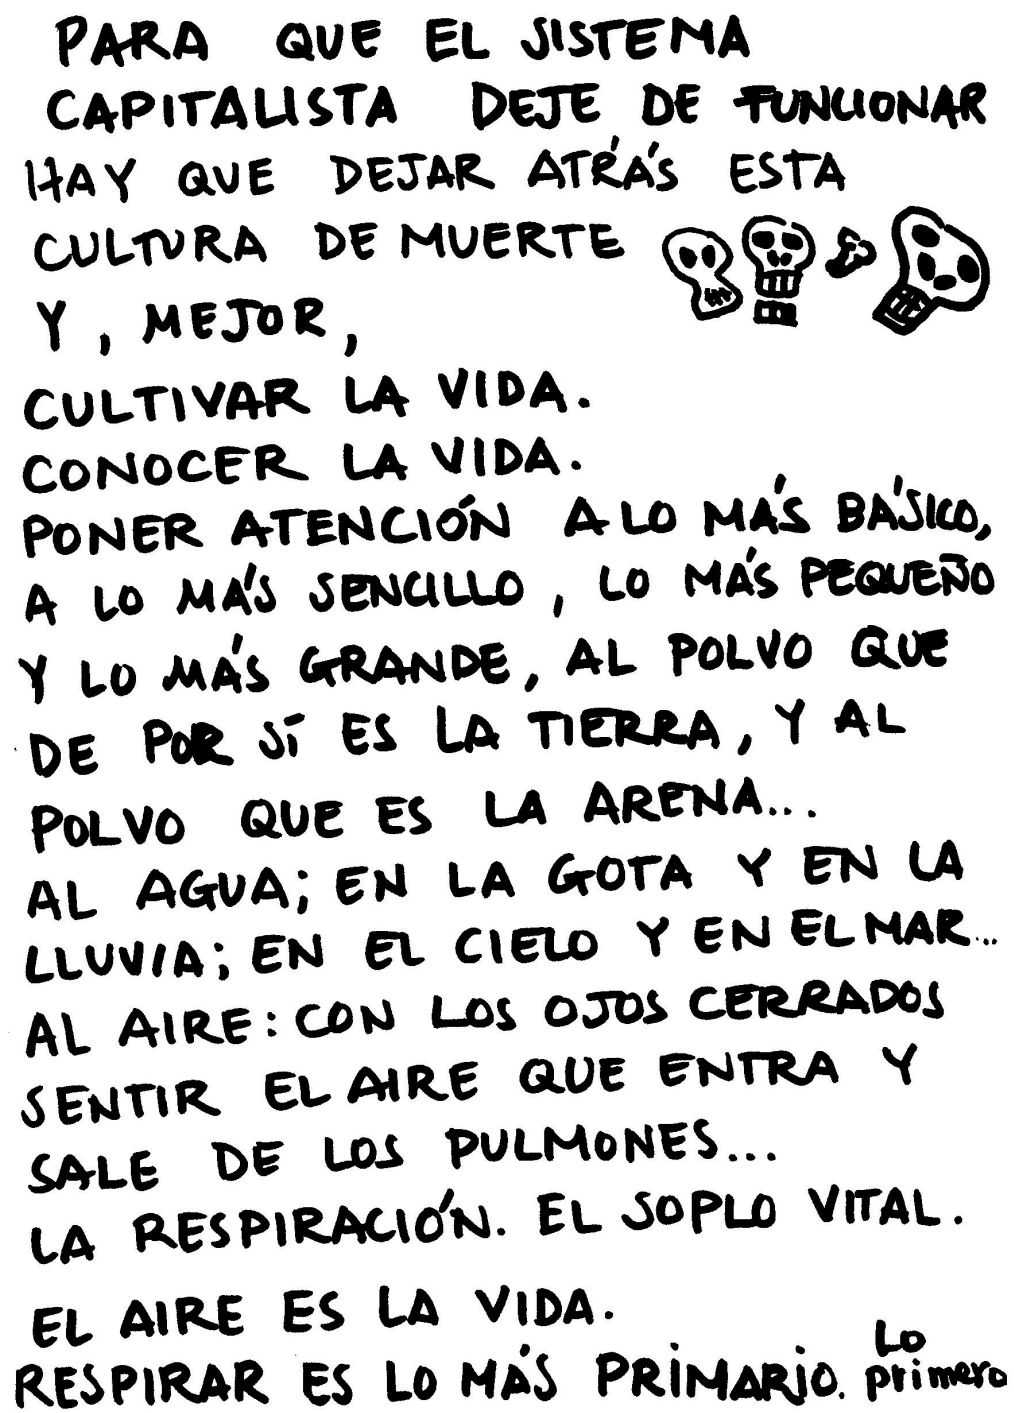 PARA QUE EL SISTEMA
CAPITALISTA DEJE DE FUNCIONAR
HAY QUE DEJAR ATRÁS ESTA
CULTURA DE MUERTE
Y, MEJOR,
CULTIVAR LA VIDA.
CONOCER LA VIDA.
PONER ATENCIÓN A LO MÁS BÁSICO,
A LO MÁS SENCILLO, LO MÁS PEQUEÑO
Y LO MÁS GRANDE, AL POLVO QUE
DE POR SÍ ES LA TIERRA, Y AL
POLVO QUE ES LA ARENA...
AL AGUA; EN LA GOTA Y EN LA
LLUVIA; EN EL CIELO Y EN EL MAR...
AL AIRE: CON LOS OJOS CERRADOS
SENTIR EL AIRE QUE ENTRA Y
SALE DE LOS PULMONES...
LA RESPIRACIÓN. EL SOPLO VITAL.
EL AIRE ES LA VIDA.
RESPIRAR ES LO MÁS PRIMARIO. Lo primero